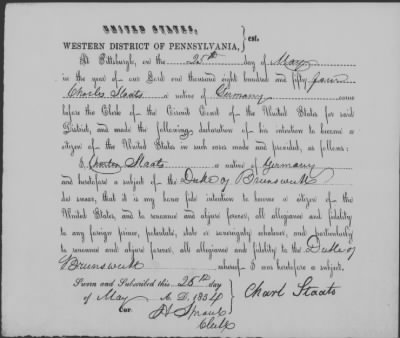 UNITED STATES,
WESTERN DISTRICT OF PENNSYLVANIA, } ss.
At Pittsburgh, on the 25th day of May
in the year of our Lord one thousand eight hundred and fifty four
Charles Staats a native of Germany came
before the Clerk of the Circuit Court of the United States for said
District, and made the following declaration of his intention to become a
citizen of the United States in such case made and provided, as follows:
I, Staats a native of Germany
and heretofore a subject of the Duke of Brunswick
do swear, that it is my bona fide intention to become a citizen of the
United States, and to renounce and abjure forever, all allegiance and fidelity
to any foreign prince, potentate, state or sovereignty whatever, and particularly
to renounce and abjure forever, all allegiance and fidelity to the Duke of
Brunswick whereof I was heretofore a subject.
Sworn and Subscribed this 25th day
of May A. D. 1854
Cor. H Sproul
Clerk
Charl Staats